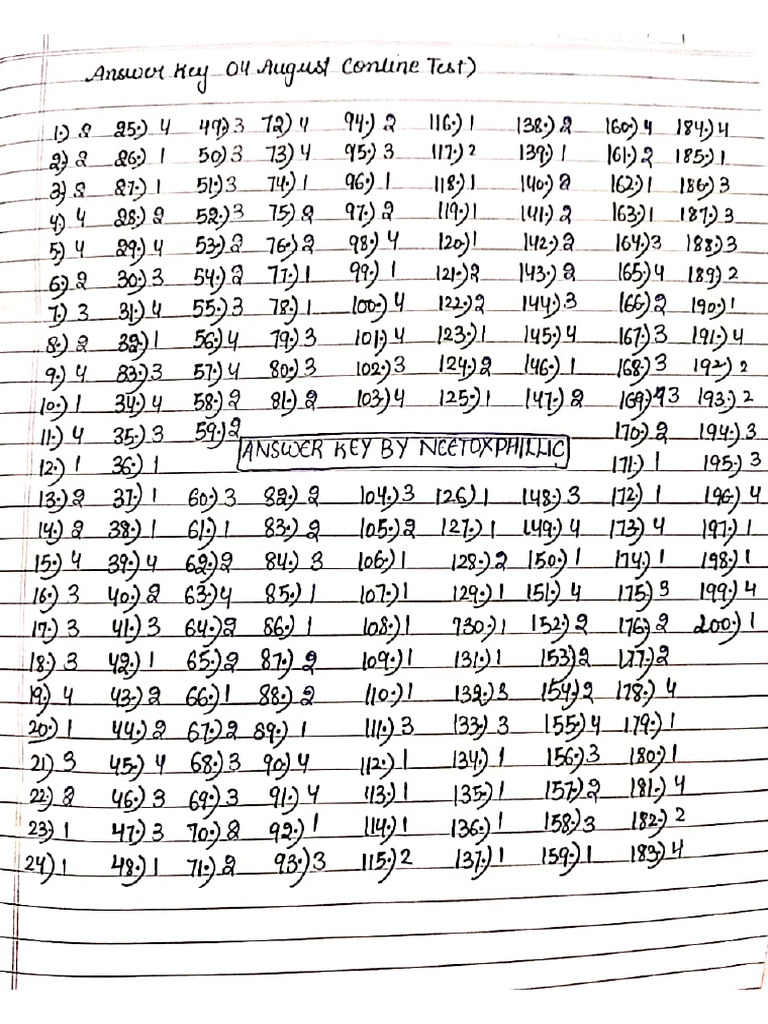 Answer Key 04 August (Online Test)
1.) 2 25.) 4 49.) 3 72) 4 94.) 2 116.) 1 138.) 2 160.) 4 184.) 4
2.) 2 26.) 1 50.) 3 73.) 4 95.) 3 117.) 2 139.) 1 161.) 2 185.) 1
3.) 2 27.) 1 51.) 3 74.) 1 96.) 1 118.) 1 140.) 2 162.) 1 186.) 3
4.) 4 28.) 2 52.) 3 75.) 2 97.) 2 119.) 1 141.) 2 163.) 1 187.) 3
5.) 4 29.) 4 53.) 2 76.) 2 98.) 4 120.) 1 142.) 2 164.) 3 188.) 3
6.) 2 30.) 3 54.) 2 77.) 1 99.) 1 121.) 2 143.) 2 165.) 4 189.) 2
7.) 3 31.) 4 55.) 3 78.) 1 100.) 4 122.) 2 144.) 3 166.) 2 190.) 1
8.) 2 32.) 1 56.) 4 79.) 3 101.) 4 123.) 1 145.) 4 167.) 3 191.) 4
9.) 4 33.) 3 57.) 4 80.) 3 102.) 3 124.) 2 146.) 1 168.) 3 192) 2
10.) 1 34.) 4 58.) 2 81.) 2 103.) 4 125.) 1 147.) 2 169.) 3 193.) 2
11.) 4 35.) 3 59.) 2 170.) 2 194.) 3
ANSWER KEY BY NEETOXPHILLIC
12.) 1 36.) 1 171.) 1 195.) 3
13.) 2 37.) 1 60.) 3 82.) 2 104.) 3 126.) 1 148.) 3 172.) 1 196.) 4
14.) 2 38.) 1 61.) 1 83.) 2 105.) 2 127.) 1 149.) 4 173.) 4 197.) 1
15.) 4 39.) 4 62.) 2 84.) 3 106.) 1 128.) 2 150.) 1 174.) 1 198.) 1
16.) 3 40.) 2 63.) 4 85.) 1 107.) 1 129.) 1 151.) 4 175.) 3 199.) 4
17.) 3 41.) 3 64.) 2 86.) 1 108.) 1 130.) 1 152.) 2 176.) 2 200.) 1
18.) 3 42.) 1 65.) 2 87.) 2 109.) 1 131.) 1 153.) 2 177.) 2
19.) 4 43.) 2 66.) 1 88.) 2 110.) 1 132.) 3 154.) 2 178.) 4
20.) 1 44.) 2 67.) 2 89.) 1 111.) 3 133.) 3 155.) 4 179.) 1
21.) 3 45.) 4 68.) 3 90.) 4 112.) 1 134.) 1 156.) 3 180.) 1
22.) 2 46.) 3 69.) 3 91.) 4 113.) 1 135.) 1 157.) 2 181.) 4
23.) 1 47.) 3 70.) 2 92.) 1 114.) 1 136.) 1 158.) 3 182.) 2
24.) 1 48.) 1 71.) 2 93.) 3 115.) 2 137.) 1 159.) 1 183.) 4